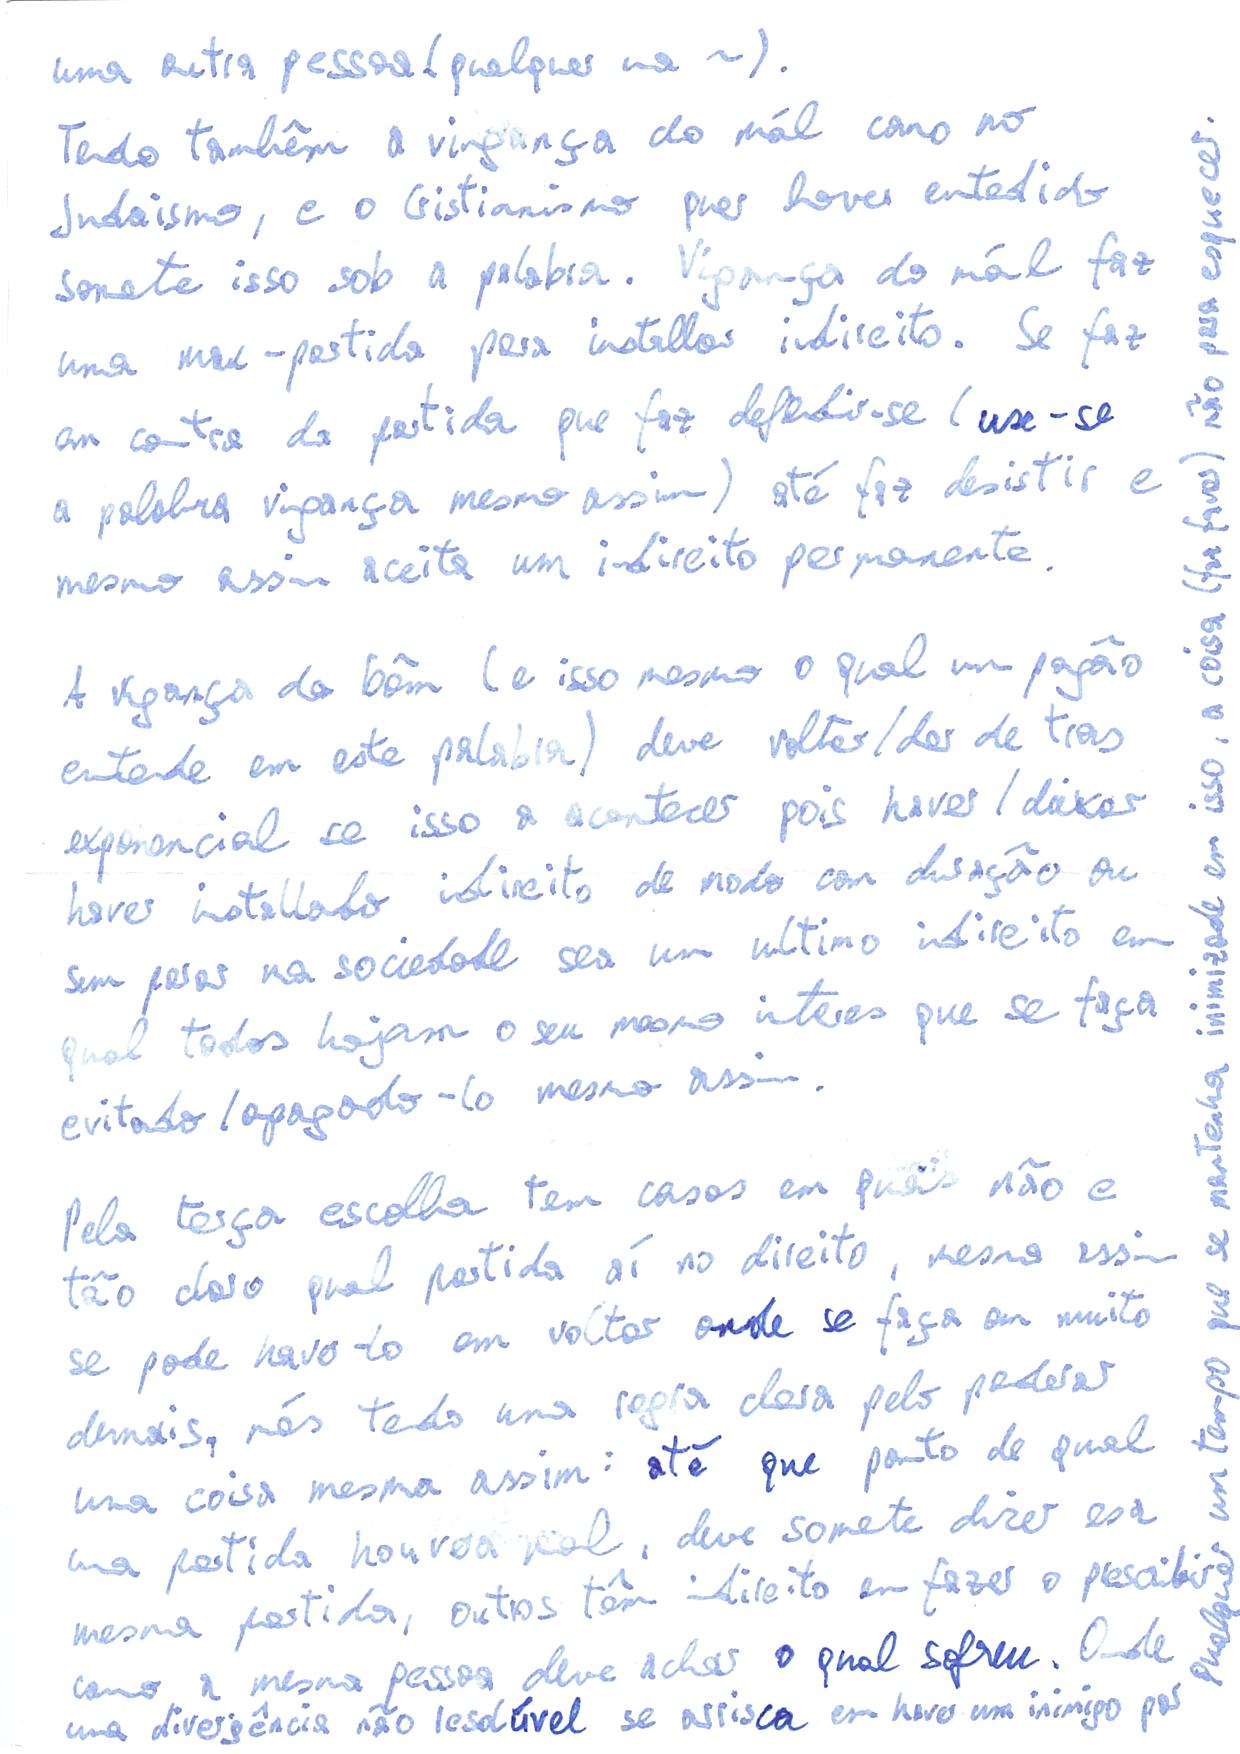 uma outra pessoa (qualquer na ~).
Tendo tambêm a vingança do mál como no
Judaismo, e o Cristianismo quer haver entedido
somete isso sob a palabra. Vigança do mál faz
uma -partida para installar indireito. Se faz
em contra da partida que faz defendir-se (use-se
a palabra vigança mesmo assim) até faz desistir e
mesmo assim aceita um indireito permanente.
A vigança do bôm (e isso mesmo o qual um pagão
entende em este palabra) deve voltar/dar de tras
exponencial se isso a acontecer pois haver/deixar
haver installado indireito de modo com duração ou
sem parar na sociedade sea um ultimo indireito em
qual todos hajam o seu mesmo interes que se faça
evitado/apagado-lo mesmo assim.
Pela terça escolha tem casos em quais não e
tão claro qual partida aí no direito, mesmo assim
se pode havo-lo em voltar onde se faça em muito
demais, más tedo uma regra clara pelo poderar
uma coisa mesma assim: até que ponto de qual
uma partida houvera mal, deve somete dizer esa
mesma partida, outros têm indireito em fazer o prescibir
como a mesma pessoa deve achar o qual sofreu. Onde
uma divergência não resolúvel se arrisca em haver um inimigo por
qualquer um tempo que se mantenha inimizade em isso, a coisa (por favor) não para esquecer.